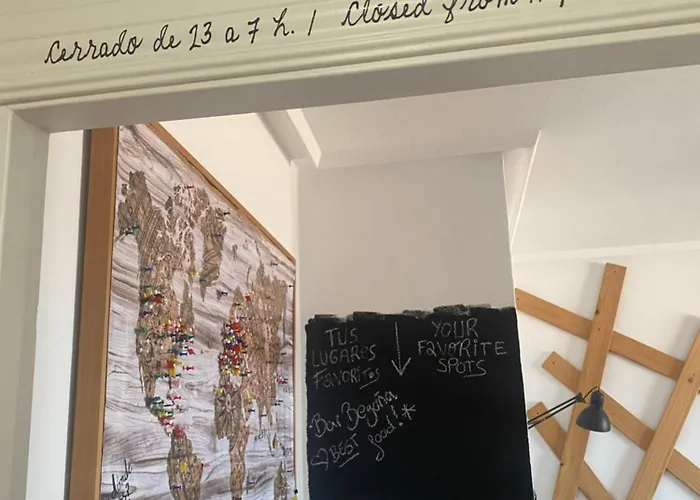 Cerrado de 23 a 7 h. / Closed from
TUS
LUGARES
FAVORITOS
YOUR
FAVORITE
SPOTS
Bar Begoña
BEST food!